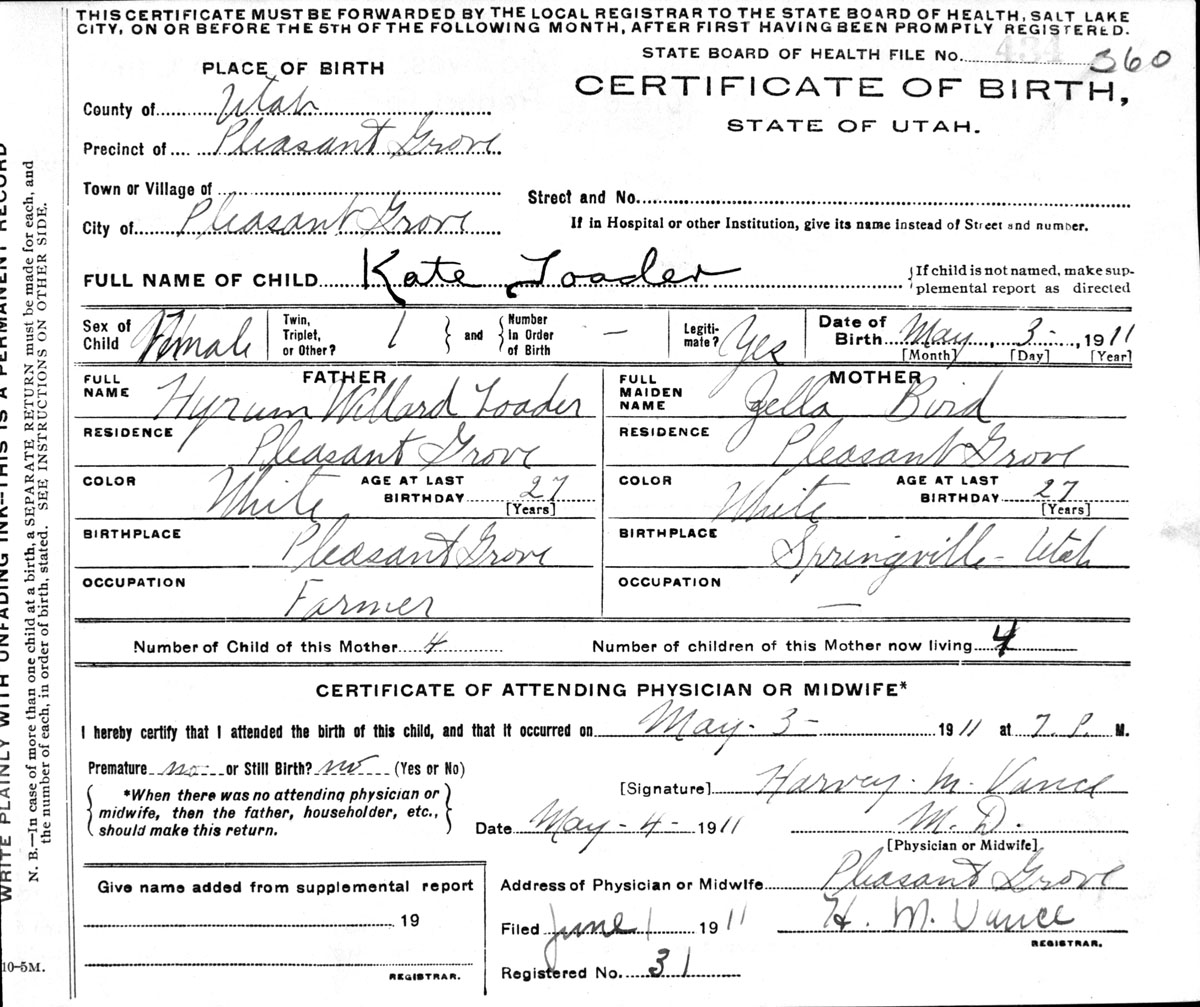 THIS CERTIFICATE MUST BE FORWARDED BY THE LOCAL REGISTRAR TO THE STATE BOARD OF HEALTH, SALT LAKE
CITY, ON OR BEFORE THE 5TH OF THE FOLLOWING MONTH, AFTER FIRST HAVING BEEN PROMPTLY REGISTERED.
STATE BOARD OF HEALTH FILE No. 434 360
PLACE OF BIRTH
CERTIFICATE OF BIRTH,
STATE OF UTAH.
County of Utah
Precinct of Pleasant Grove
Town or Village of
Street and No.
City of Pleasant Grove
If in Hospital or other Institution, give its name instead of Street and number.
FULL NAME OF CHILD Kate Loader
If child is not named, make sup-
plemental report as directed
Sex of Child Female
Twin, Triplet, or Other? 1
and
Number in Order of Birth –
Legiti-mate? Yes
Date of Birth May 3 1911
[Month] [Day] [Year]
FATHER
FULL NAME Hyrum Willard Loader
RESIDENCE Pleasant Grove
COLOR White AGE AT LAST BIRTHDAY 27
[Years]
BIRTHPLACE Pleasant Grove
OCCUPATION Farmer
MOTHER
FULL MAIDEN NAME Zella Bird
RESIDENCE Pleasant Grove
COLOR White AGE AT LAST BIRTHDAY 27
[Years]
BIRTHPLACE Springville – Utah
OCCUPATION —
Number of Child of this Mother 4 Number of children of this Mother now living 4
CERTIFICATE OF ATTENDING PHYSICIAN OR MIDWIFE*
I hereby certify that I attended the birth of this child, and that it occurred on May - 3 - 1911 at 7 P. M.
Premature no or Still Birth? no (Yes or No)
*When there was no attending physician or
midwife, then the father, householder, etc.,
should make this return.
[Signature] Harvey M. Vance
Date May - 4 - 1911 M. D.
[Physician or Midwife]
Give name added from supplemental report
19
REGISTRAR.
Address of Physician or Midwife Pleasant Grove
Filed June 1 1911 H. M. Vance
REGISTRAR.
Registered No. 31
WRITE PLAINLY WITH UNFADING INK--THIS IS A PERMANENT RECORD
N. B.—In case of more than one child at a birth, a SEPARATE RETURN must be made for each, and
the number of each, in order of birth, stated. SEE INSTRUCTIONS ON OTHER SIDE.
10-5M.